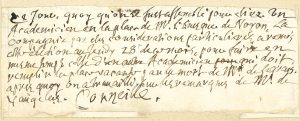 Ce Jour, quoy qu'on se fust assemblé pour elire un
Academicien en la place de M. l'Evesque de Noyon la
Compagnie par des considerations particulieres, a remis
l'election au Jeudy 28 de mars, pour faire en
mesme temps celle d'un autre Academicien qui doit
remplir la place vacante par la mort de Mr de
apres quoy on a travaillé sur les remarques de Mr de
Vaugelas. Corneille.